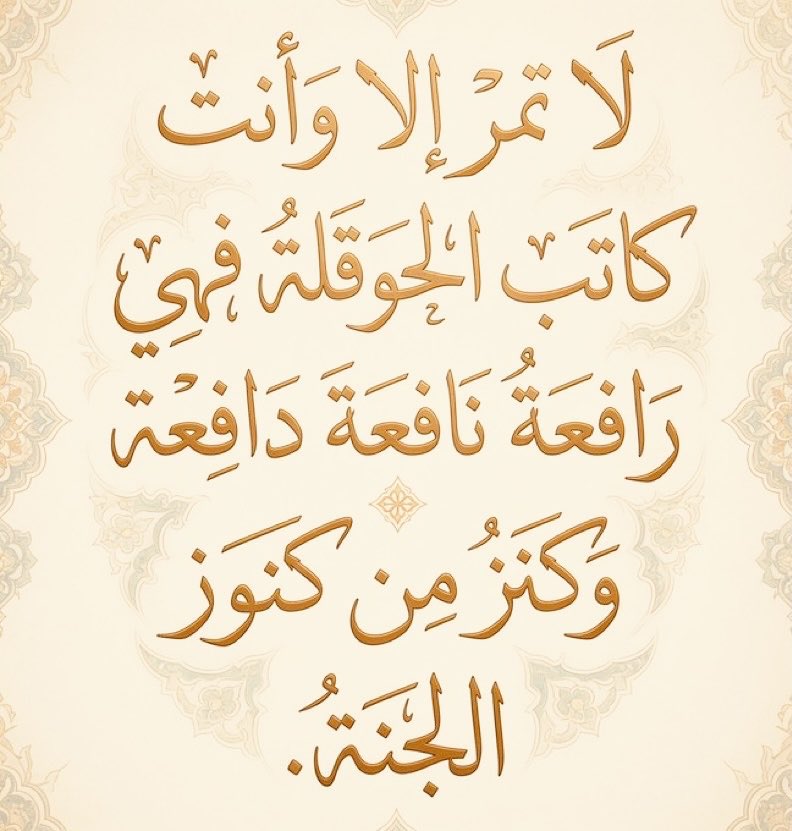 لَا تمرْ إلا وَأنت
كاتَب الحَوقَلةُ فهِي
رَافعَةُ نَافعَةَ دَافِعْة
وَكَنَزُ مِن كَنوَز
الجنَةُ.